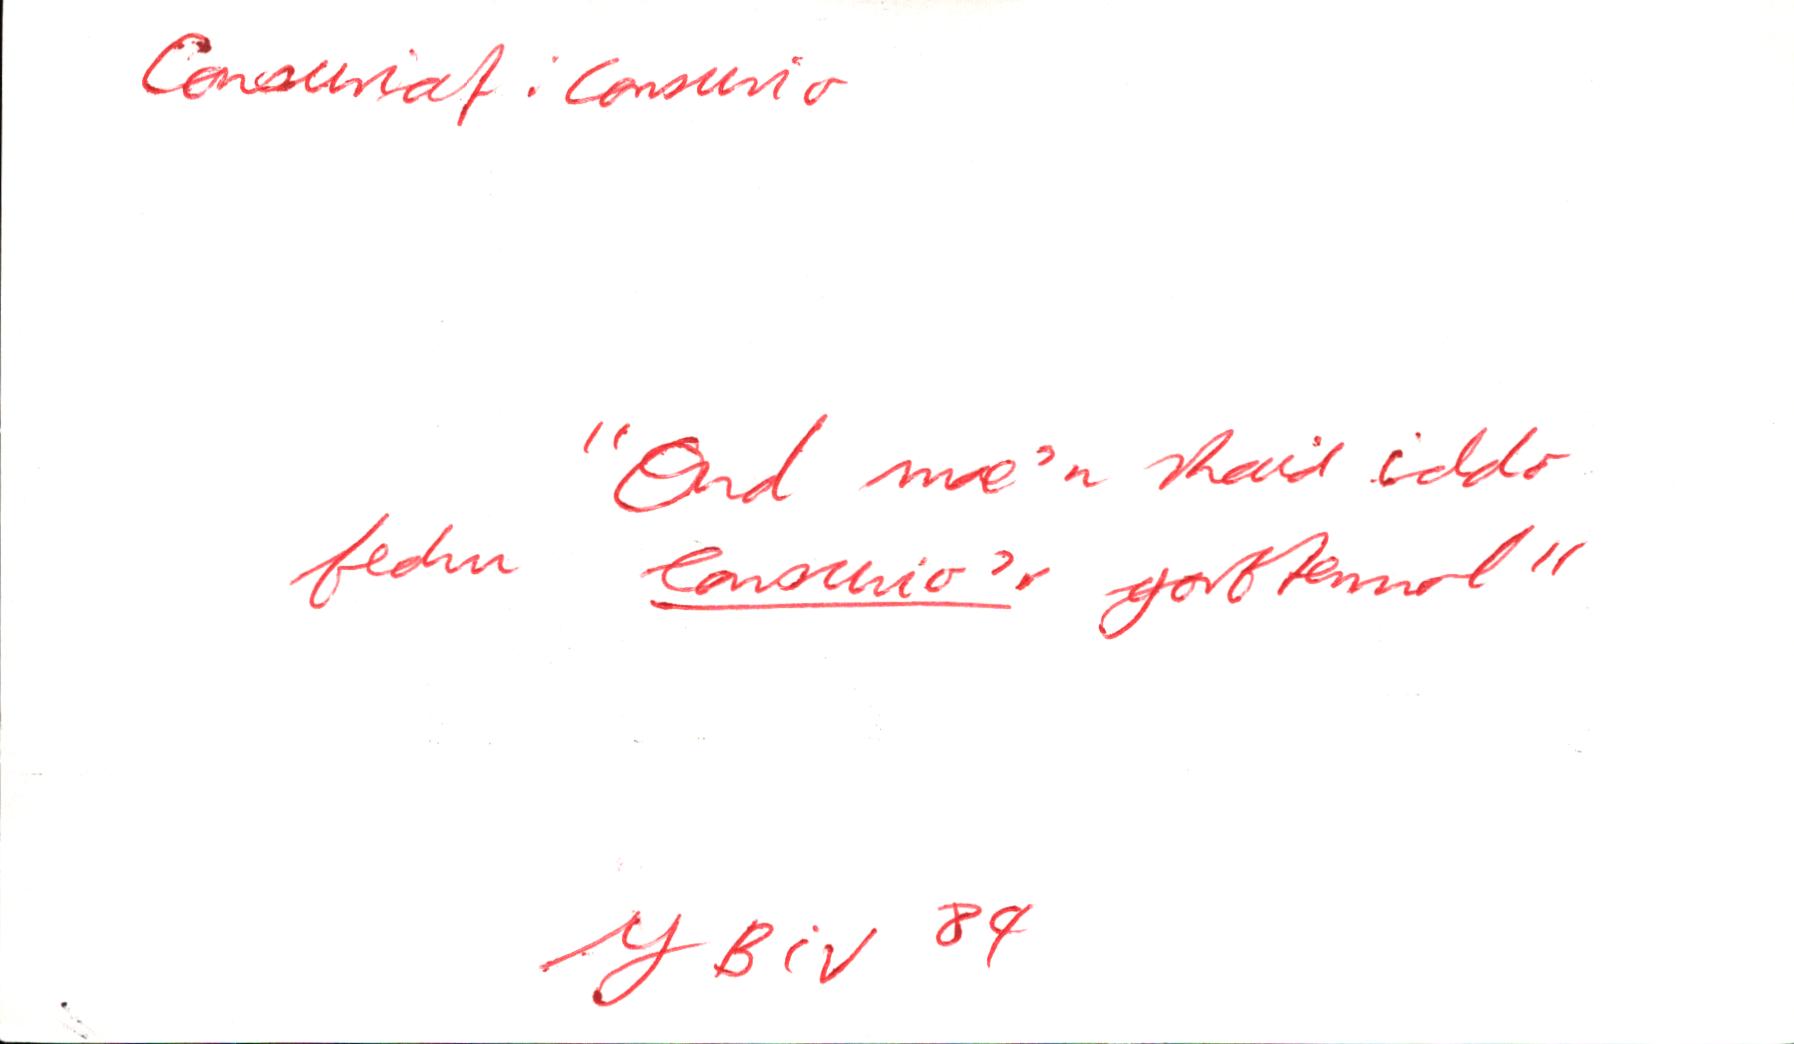 Consuriaf : Consurio
"Ond mae'n rhaid iddo
fedru consurio'r gorffennol"
Y B iv 84